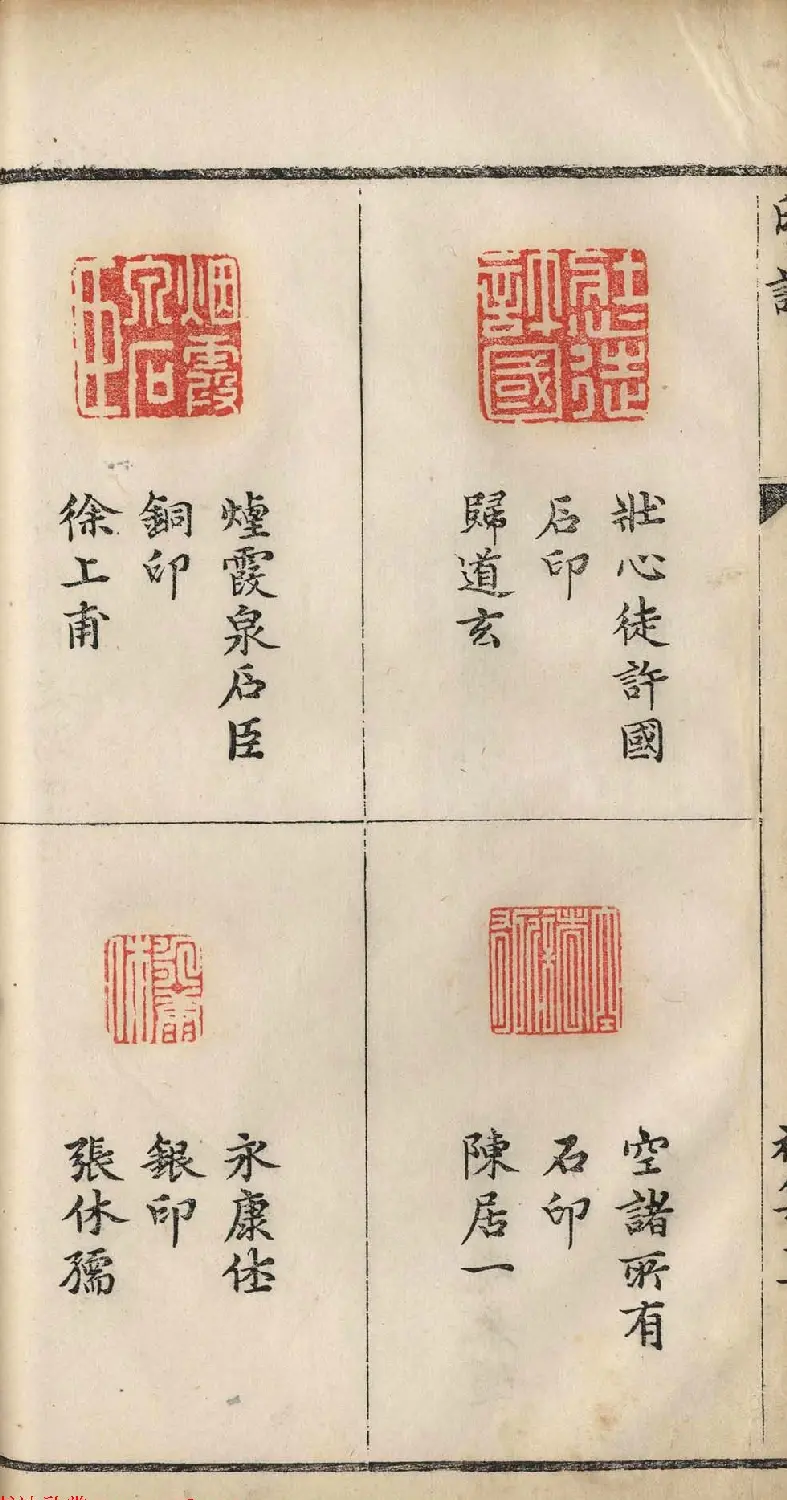 壯心徒許國
石印
歸道玄
空諸所有
石印
陳居一
煙霞泉石臣
銅印
徐上甫
永康休
銀印
張休孺